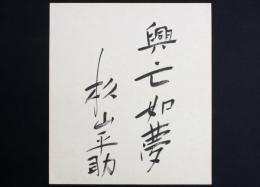 興亡如夢
杉山平助